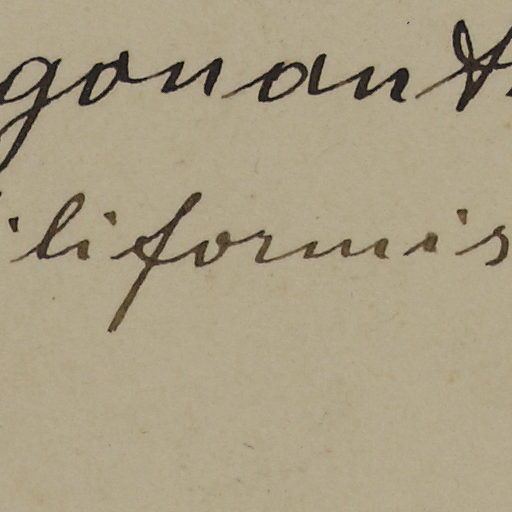 gonanth
iliformis